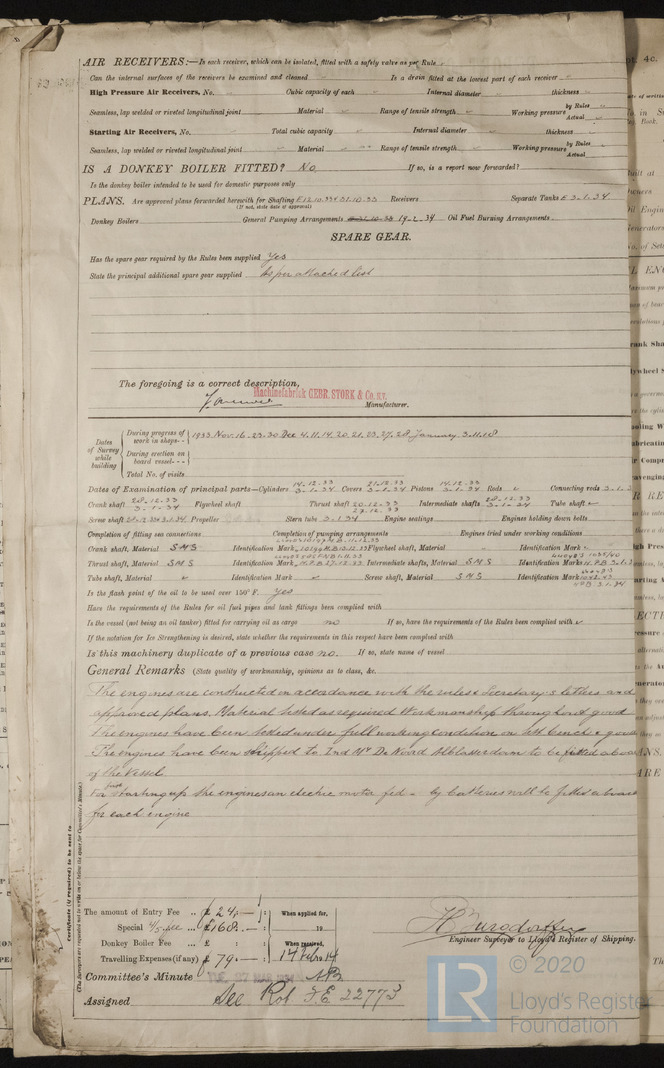 AIR RECEIVERS:—Is each receiver, which can be isolated, fitted with a safety valve as per Rule
Can the internal surfaces of the receivers be examined and cleaned Is a drain fitted at the lowest part of each receiver
High Pressure Air Receivers, No. Cubic capacity of each Internal diameter thickness
Seamless, lap welded or riveted longitudinal joint Material Range of tensile strength Working pressure by Rules
Actual
Starting Air Receivers, No. Total cubic capacity Internal diameter thickness
Seamless, lap welded or riveted longitudinal joint Material Range of tensile strength Working pressure by Rules
Actual
IS A DONKEY BOILER FITTED? No If so, is a report now forwarded?
Is the donkey boiler intended to be used for domestic purposes only
PLANS. Are approved plans forwarded herewith for Shafting Receivers Separate Tanks 3.1.34
(If not, state date of approval)
Donkey Boilers General Pumping Arrangements 19-2-34 Oil Fuel Burning Arrangements
SPARE GEAR.
Has the spare gear required by the Rules been supplied Yes
State the principal additional spare gear supplied As per attached list
The foregoing is a correct description,
Machinefabriek GEBR. STORK & Co. N.V.
Manufacturer.
Dates of Survey while building
During progress of work in shops-- 1933 Nov. 16-23-30 Dec 4.11.14.20.21.23.27.28 January 3.11.18
During erection on board vessel---
Total No. of visits
Dates of Examination of principal parts—Cylinders 14.12.33 3-1-34 Covers 21.12.33 3-1-34 Pistons 14.12.33 3-1-34 Rods Connecting rods
Crank shaft 28.12.33 3-1-34 Flywheel shaft Thrust shaft 20.12.33 27.12.33 Intermediate shafts 28.12.33 3-1-34 Tube shaft
Screw shaft Propeller Stern tube 3-1-34 Engine seatings Engines holding down bolts
Completion of fitting sea connections Completion of pumping arrangements Engines tried under working conditions
Crank shaft, Material S M S Identification Mark Flywheel shaft, Material Identification Mark
Thrust shaft, Material S M S Identification Mark Intermediate shafts, Material S M S Identification Marks
Tube shaft, Material Identification Mark Screw shaft, Material S M S Identification Mark
Is the flash point of the oil to be used over 150° F. Yes
Have the requirements of the Rules for oil fuel pipes and tank fittings been complied with
Is the vessel (not being an oil tanker) fitted for carrying oil as cargo no If so, have the requirements of the Rules been complied with
If the notation for Ice Strengthening is desired, state whether the requirements in this respect have been complied with
Is this machinery duplicate of a previous case no. If so, state name of vessel
General Remarks (State quality of workmanship, opinions as to class, &c.
The engines are constructed in accordance with the rules Secretary's letters and
approved plans. Material tested as required Workmanship throughout good
The engines have been tested under full working condition on test bench & good
The engines have been shipped to De Noord Alblasserdam to be fitted aboard
of the Vessel
For starting up the engines an electric motor fed - by batteries will be fitted aboard
for each engine
Certificate (if required) to be sent to
(The Surveyors are requested not to write on or below the space for Committee's Minute.)
The amount of Entry Fee .. £ 24.— : When applied for,
Special 4/5 fee ... £ 168.— : 19
Donkey Boiler Fee ... £ : : When received,
Travelling Expenses (if any) £ 79.— :
Engineer Surveyor to Lloyd's Register of Shipping.
Committee's Minute TUE. 27 MAR 1934
Assigned See Rot F.E 22773
LR
© 2020
Lloyd's Register
Foundation